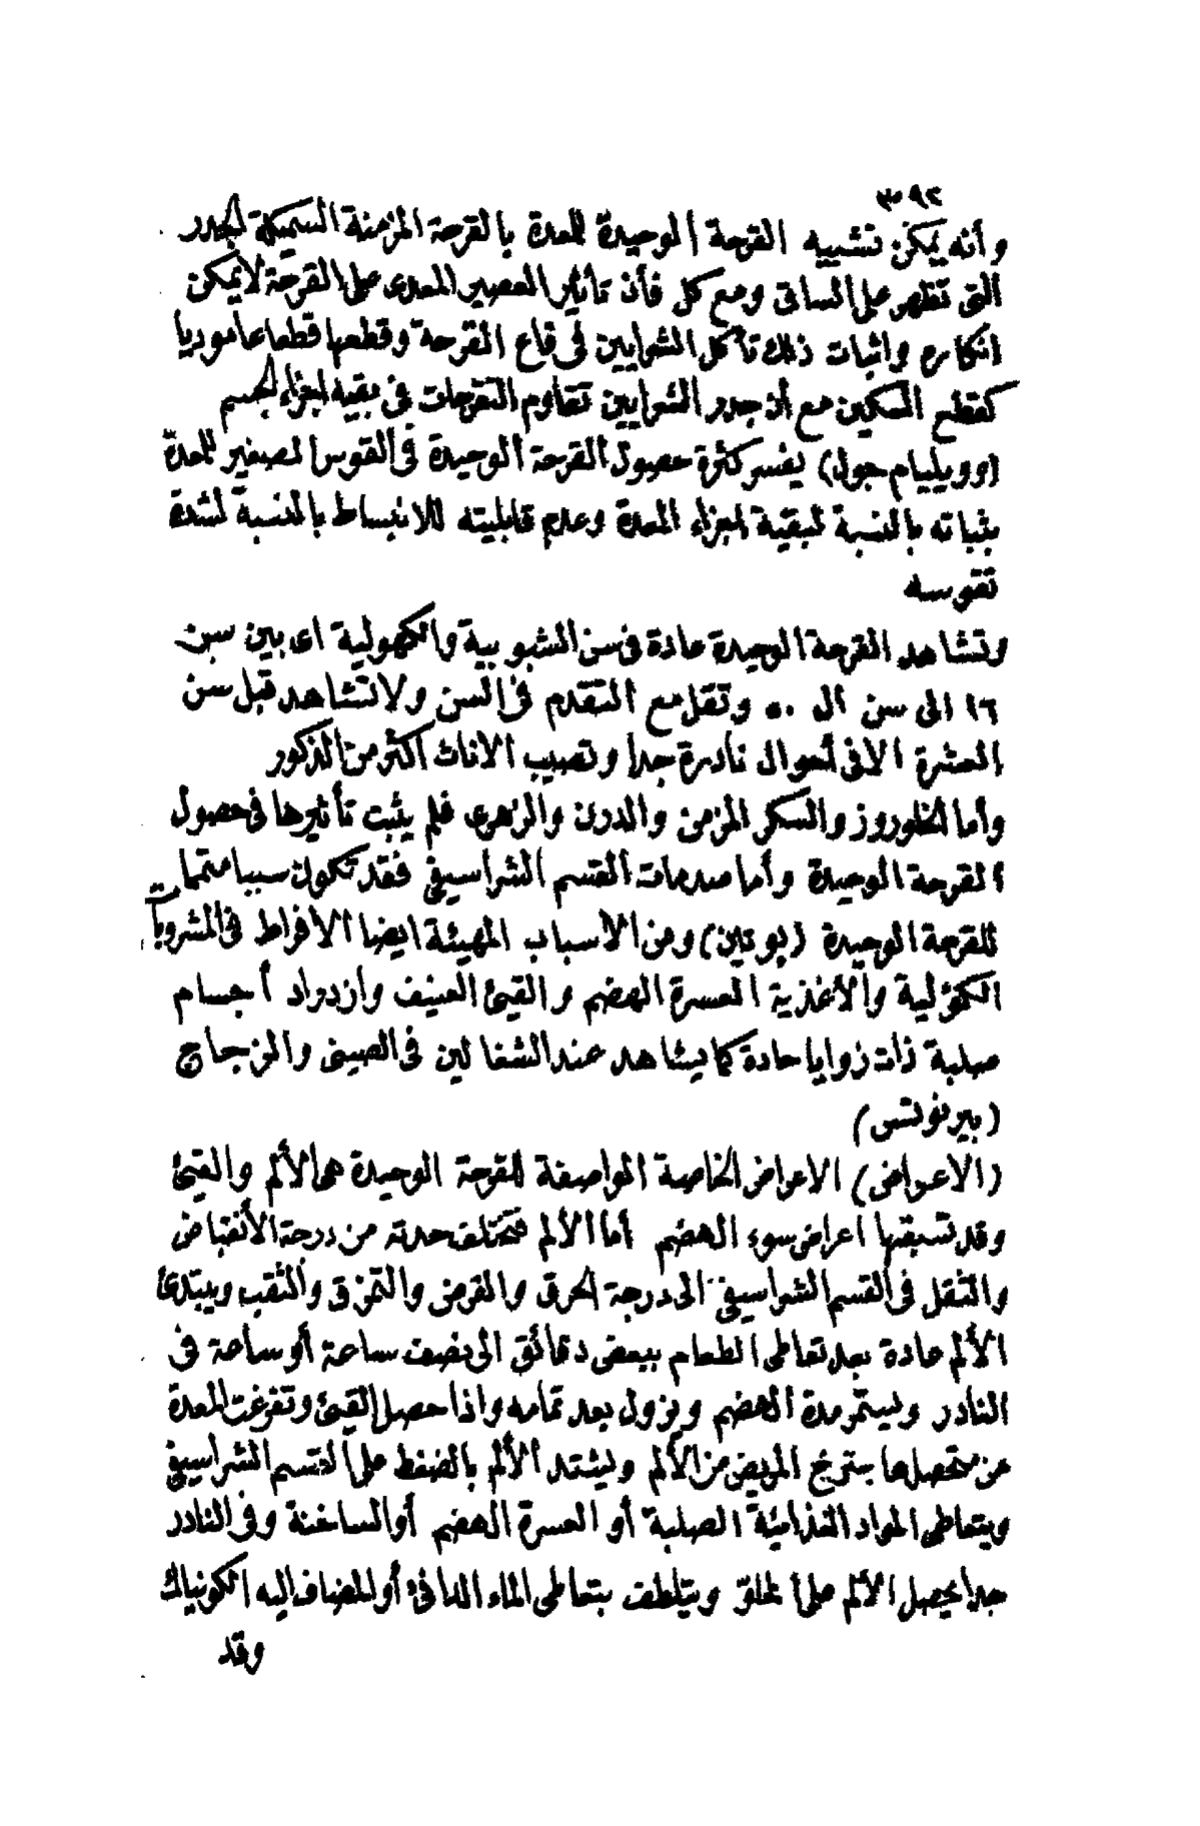 ٣٩٢
وأنه يمكن تشبيه القرحة الوحيدة للمعدة بالقرحة المزمنة السميكة الجدر
التى تظهر على الساق ومع كل فأن تأثير العصير المعدى على القرحة لايمكن
انكاره واثبات ذلك تأكل الشرايين فى قاع القرحة وقطعها قطعا عاموريا
كقطع السكين مع أن جدر الشرايين تقاوم التقرحات فى بقية اجزاء الجسم
(وويليام جول) يفسر كثرة حصول القرحة الوحيدة فى القوس الصغير للمعدة
بثباته بالنسبة لبقية اجزاء المعدة وعدم قابليته للانبساط بالنسبة لشدة
تقوسه
وتشاهد القرحة الوحيدة عادة فى سن الشبوبية والكهولية اى بين سن
١٦ الى سن ال ٥٠ وتقل مع التقدم فى السن ولا تشاهد قبل سن
العشرة الا فى أحوال نادرة جدا وتصيب الاناث اكثر من الذكور
وأما الخلوروز والسكر المزمن والدرن والزهرى فلم يثبت تأثيرها فى حصول
القرحة الوحيدة وأما صدمات القسم الشراسيفى فقد تكون سببا متمما
للقرحة الوحيدة (بوتين) ومن الاسباب المهيئة ايضا الافراط فى المشروبات
الكؤلية والأغذية العسرة الهضم والقيئ العنيف وازدراد أجسام
صلبة ذات زوايا حادة كما يشاهد عند الشغالين فى الصينى والزجاج
(بيرنوتس)
(الاعراض) الاعراض الخاصة الواصفة للقرحة الوحيدة هى الألم والقيئ
وقد تسبقها اعراض سوء الهضم أما الألم فتختلف حدته من درجة الأنقباض
والثقل فى القسم الشراسيفى الى درجة الحرق والقرض والتمزق والثقب ويبتدئ
الألم عادة بعد تعاطى الطعام ببعض دقائق الى نصف ساعة أو ساعة فى
النادر ويستمر مدة الهضم ويزول بعد تمامه واذا حصل القيئ وتفرغت المعدة
من متحصلها يستريح المريض من الألم ويشتد الألم بالضغط على القسم الشراسيفى
وبتعاطى المواد الغذائية الصلبة أو العسرة الهضم أو الساخنة وفى النادر
جدا يحصل الألم على الخلوّ ويتلطف بتعاطى الماء الدافئ أو المضاف اليه الكونياك
وقد